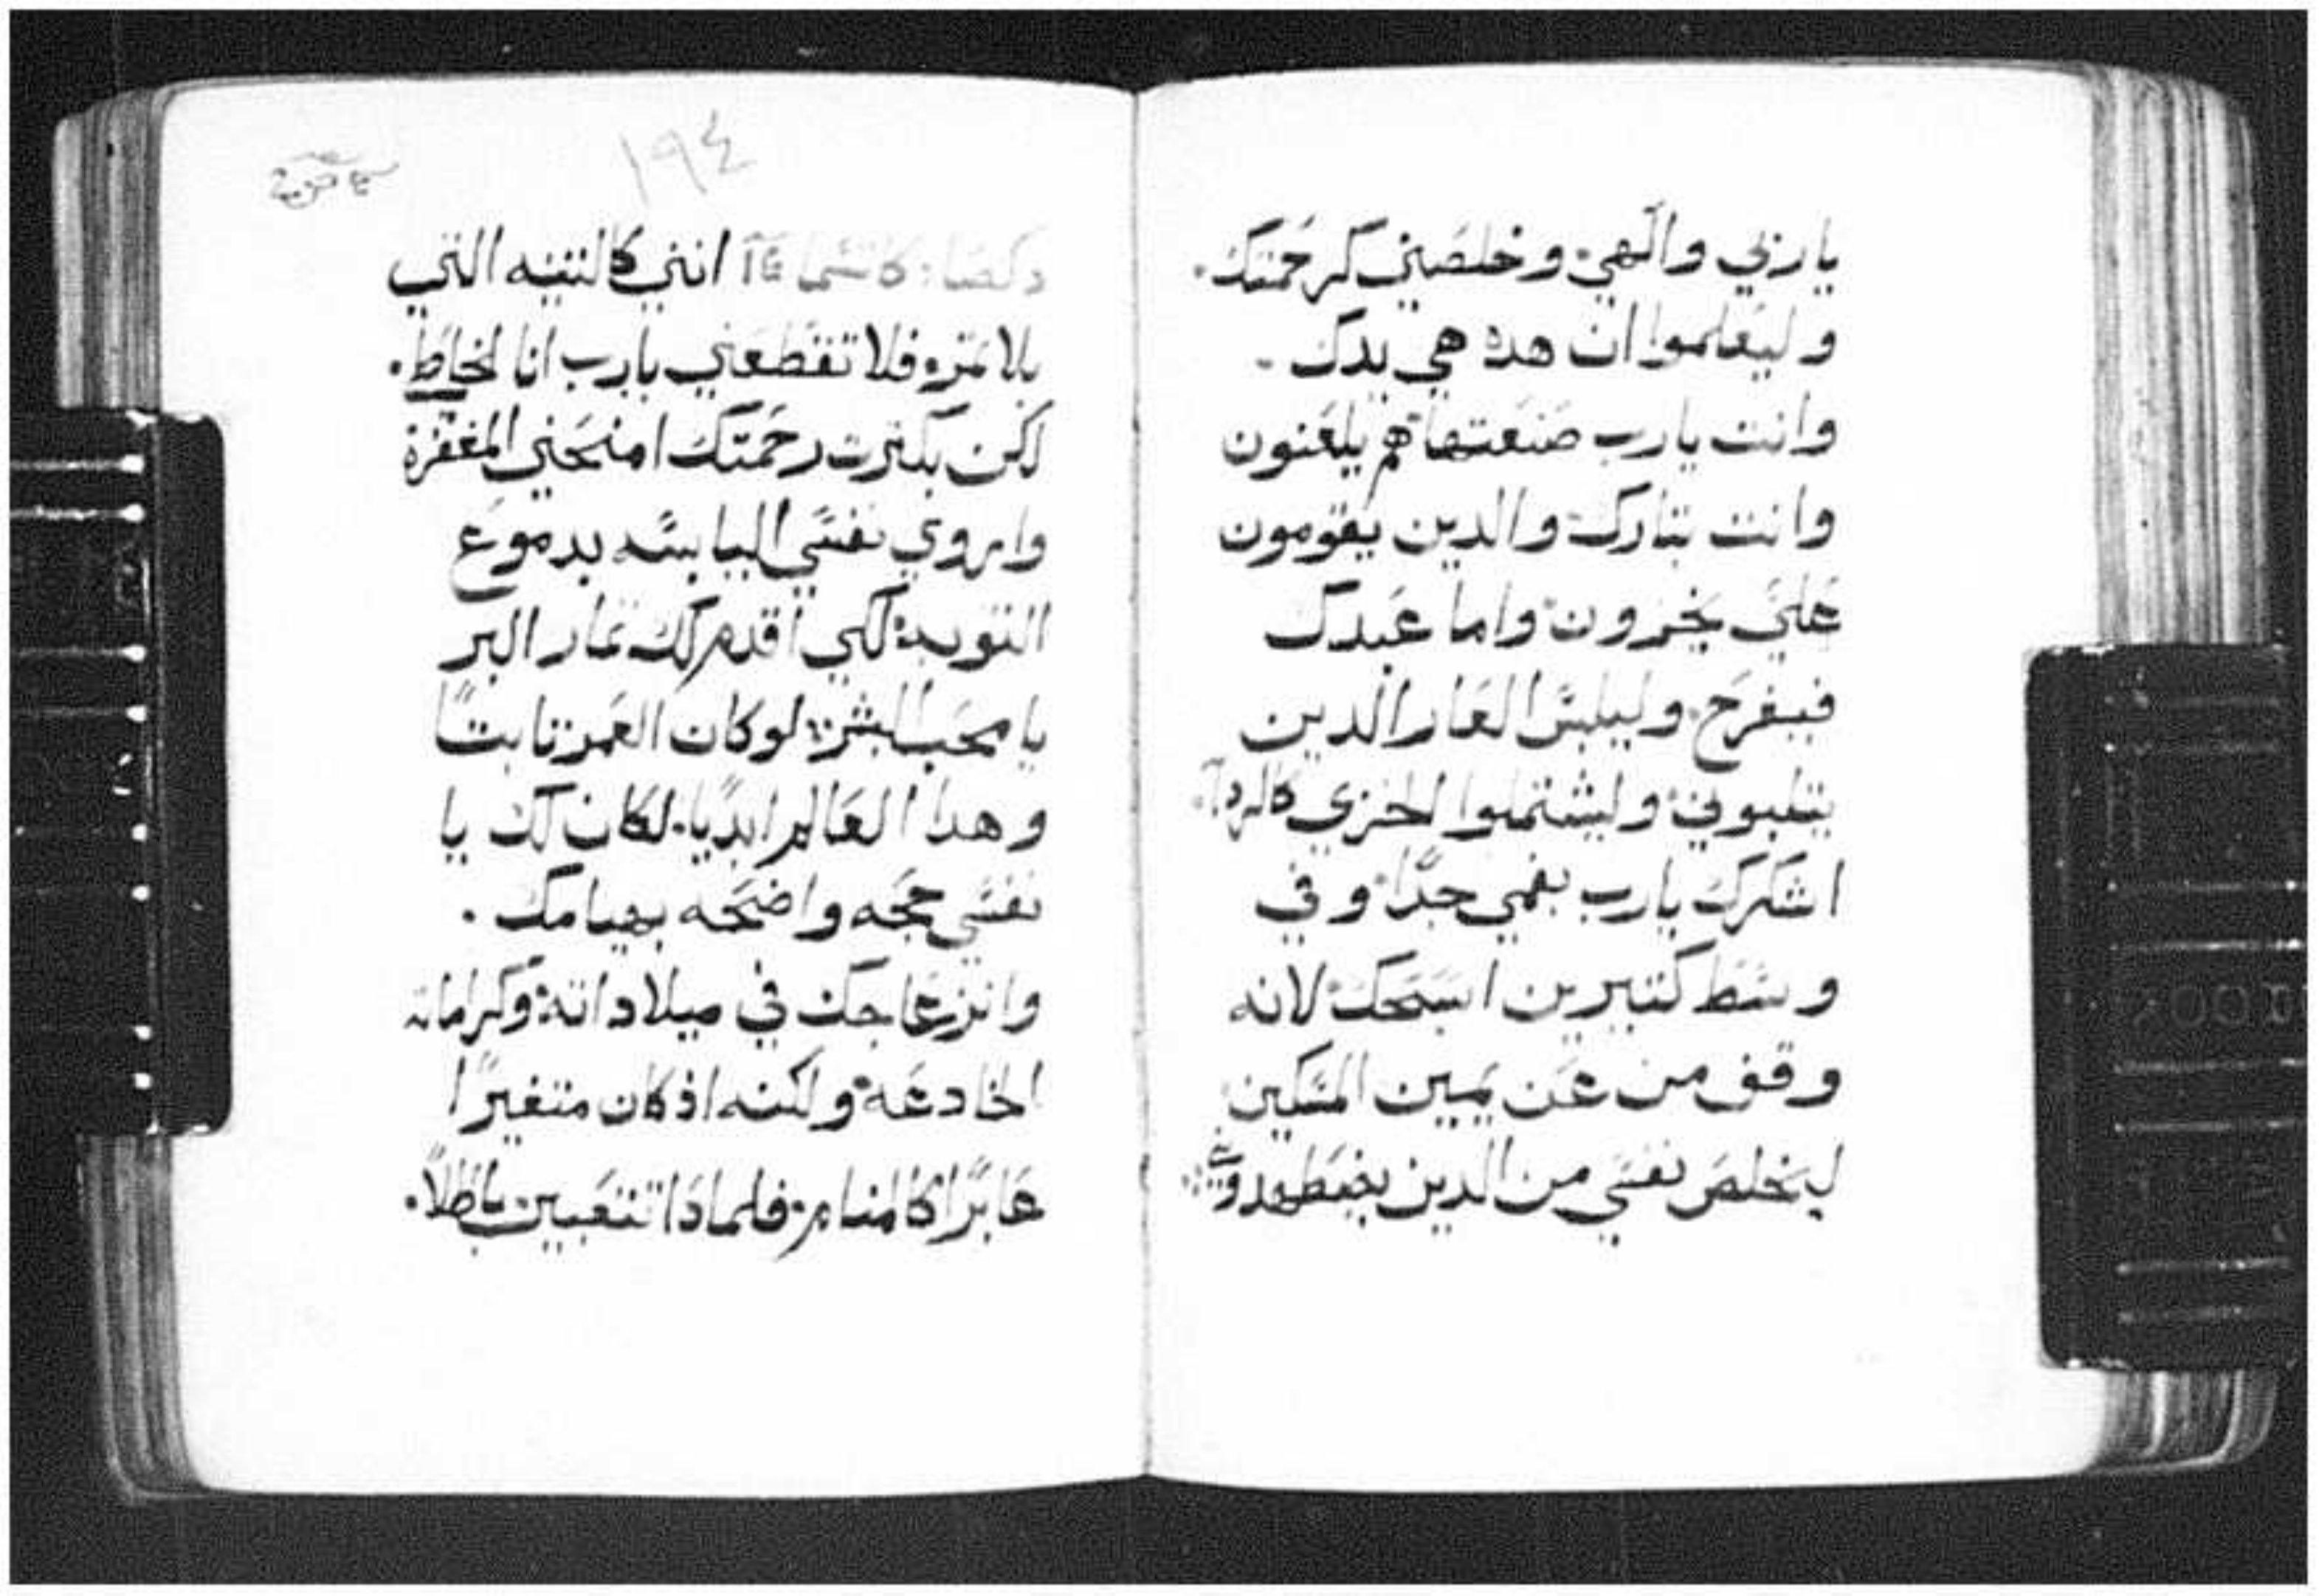 يا ربي والهي وخلصني كرحمتك.
وليعلموا ان هده هي يدك
وانت يارب صنعتها هم يلعنون
وانت تبارك والدين يقومون
علي يخزون واما عبدك
فيفرح وليلبس العار الدين
يتلبوني وليشتملوا الخزي كالردآ
اشكرك يارب بفمي جدًا وفي
وسط كتيرين اسبحك لانه
وقف من عن يمين المسكين
ليخلص نفسي من الدين يضطهدوني
١٩٤
دكصا: كاتسما عآ انني كالتينه التي
بلا تمره فلا تقطعني يارب انا الخاطي.
لكن بكترت رحمتك امنحني المغفرة
واروي نفسي اليابسه بدموع
التوبه لكي اقدم لك تمار البر
يا محب البشر: لو كان العمر تابتًا
وهدا العالم ابديًا. لكان لك يا
نفسي حجه واضحه بهيامك.
وانزعاجك في ميلاداته وكراماته
الخادعه ولكنه اذ كان متغيرًا
عابرًا كالمنام. فلمادا تتعبين باطلاً.